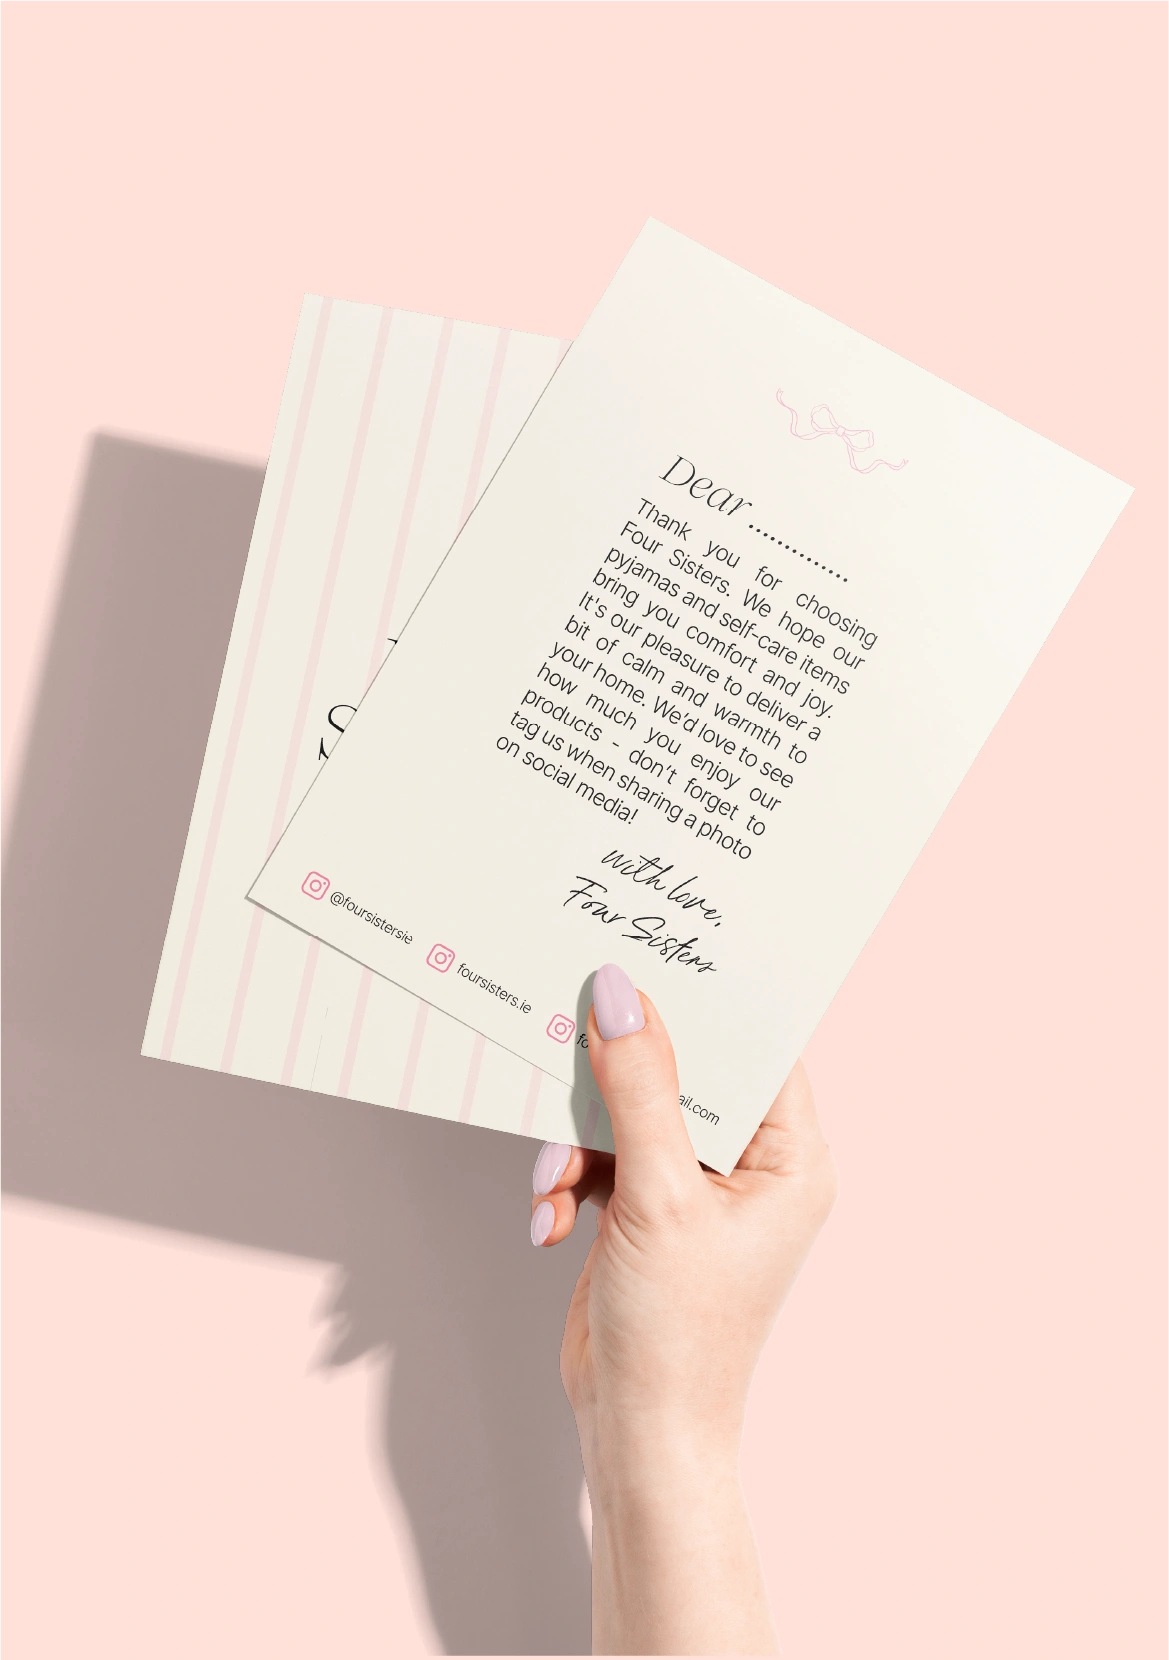 Dear ..............
Thank you for choosing
Four Sisters. We hope our
pyjamas and self-care items
bring you comfort and joy.
It's our pleasure to deliver a
bit of calm and warmth to
your home. We'd love to see
how much you enjoy our
products - don't forget to
tag us when sharing a photo
on social media!
with love,
Four Sisters
@foursistersie
foursisters.ie